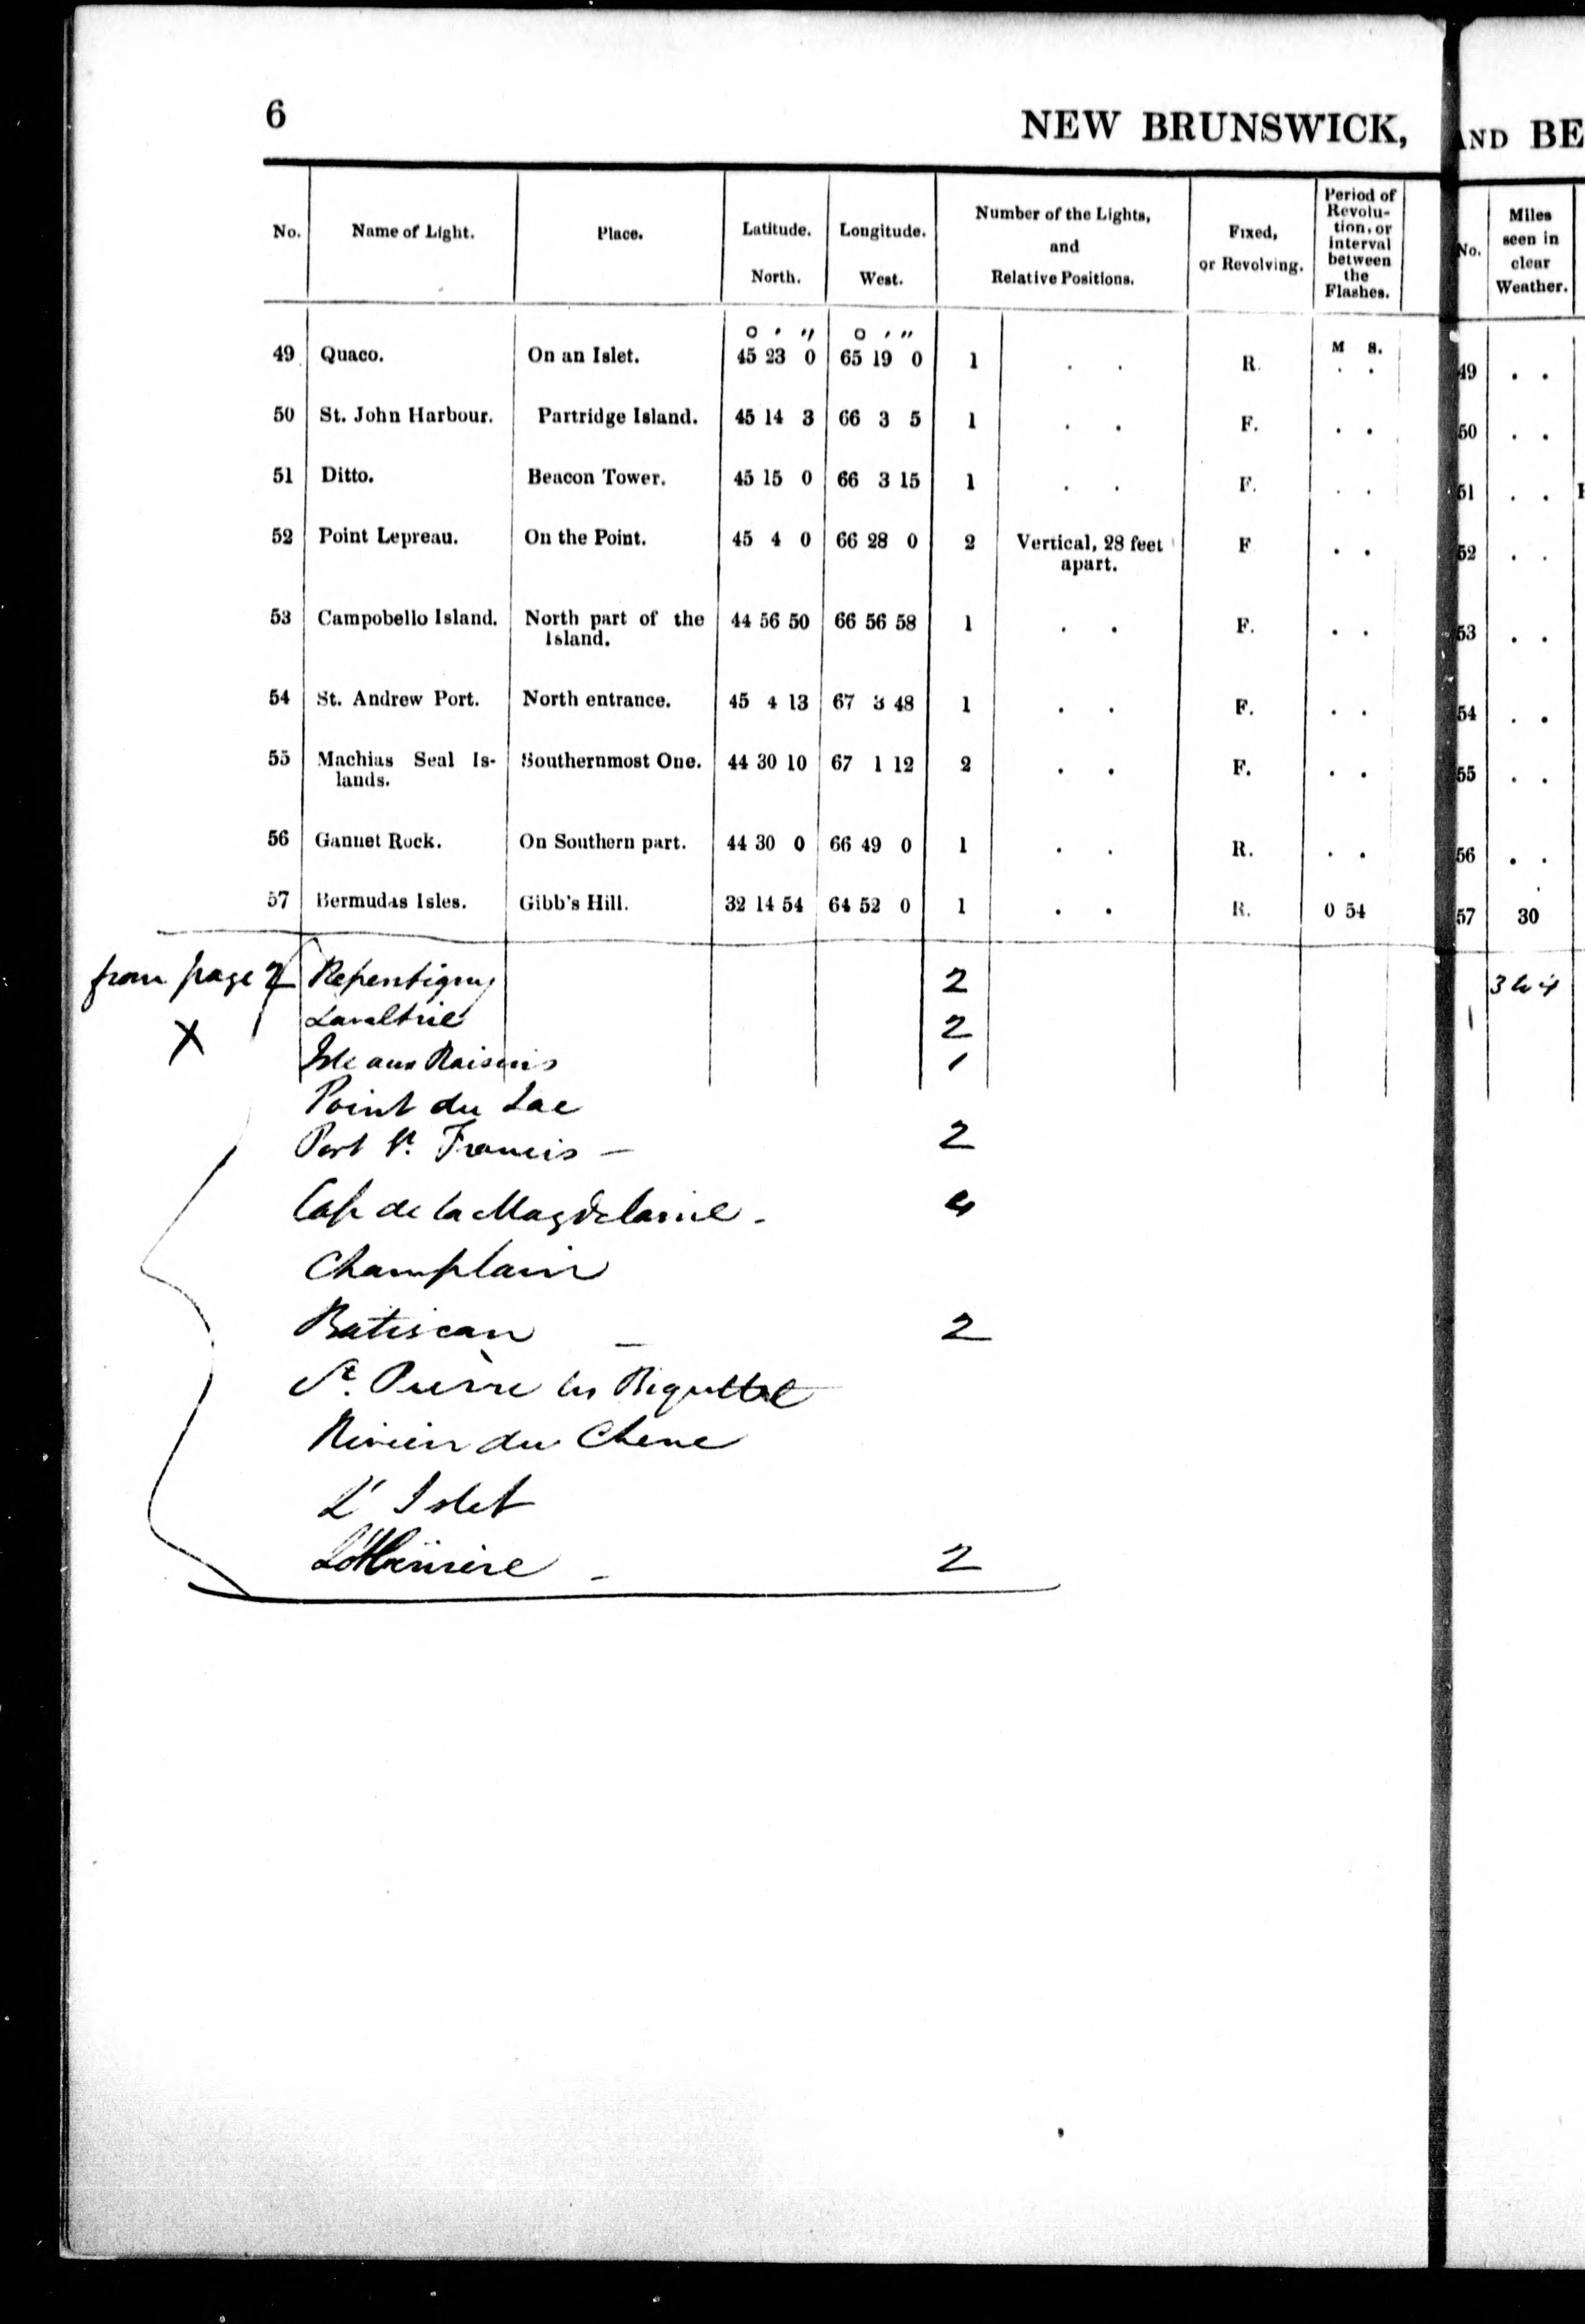 6
NEW BRUNSWICK,
No. | Name of Light. | Place. | Latitude. North. | Longitude. West. | Number of the Lights, and Relative Positions. | Fixed, or Revolving. | Period of Revolu- tion, or Interval between the Flashes.
° ' " ° ' " M S.
49 Quaco. On an Islet. 45 23 0 65 19 0 1 . . R. . .
50 St. John Harbour. Partridge Island. 45 14 3 66 3 5 1 . . F. . .
51 Ditto. Beacon Tower. 45 15 0 66 3 15 1 . . F. . .
52 Point Lepreau. On the Point. 45 4 0 66 28 0 2 Vertical, 28 feet F . .
apart.
53 Campobello Island. North part of the 44 56 50 66 56 58 1 . . F. . .
Island.
54 St. Andrew Port. North entrance. 45 4 13 67 3 48 1 . . F. . .
55 Machias Seal Is- Southernmost One. 44 30 10 67 1 12 2 . . F. . .
lands.
56 Gannet Rock. On Southern part. 44 30 0 66 49 0 1 . . R. . .
57 Bermudas Isles. Gibb's Hill. 32 14 54 64 52 0 1 . . R. 0 54
from page 2 Repentigny 2
X Lavaltrie 2
Isle aux Raisins 1
Point du Lac
Port St. Francis – 2
Cap de la Magdelaine - 4
Champlain
Batiscan – 2
St. Pierre les
Riviere du Chene
L'Islet
Lotbiniere - 2
AND BE
No. | Miles seen in clear Weather.
49 . .
50 . .
51 . .
52 . .
53 . .
54 . .
55 . .
56 . .
57 30
3 to 4